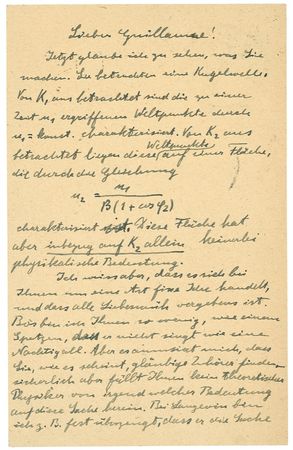 Lieber Guillaume!
Jetzt glaube ich zu sehen, was Sie
machen. Sie betrachten eine Kugelwelle.
Von K₁ aus betrachtet sind die zu einer
Zeit u₁ ergriffenen Weltpunkte durch
u₁ = konst. charakterisiert. Von K₂ aus
betrachtet liegen diese Weltpunkte auf einer Fläche,
die durch die Gleichung
u₂ = u₁ / β(1 + cos φ₂)
charakterisiert ist. Diese Fläche hat
aber inbezug auf K₂ allein keinerlei
physikalische Bedeutung.
Ich weiss aber, dass es sich bei
Ihnen um eine Art fixe Idee handelt,
und dass alle Liebesmüh vergebens ist.
Bös bin ich Ihnen so wenig, wie einem
Spatzen, dass er nicht singt wie eine
Nachtigall. Aber es amüsiert mich, dass
Sie, wie es scheint, gläubige Zuhörer finden,
sicherlich aber fällt Ihnen kein theoretischer
Physiker von irgend welcher Bedeutung
auf diese Sache herein. Bei Langevin bin
ich z. B. fest überzeugt, dass er die Sache